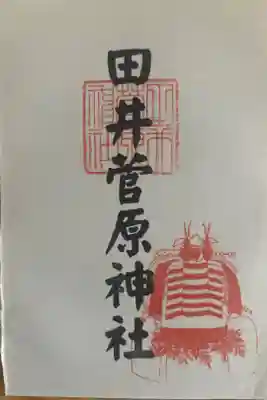 田井菅原神社